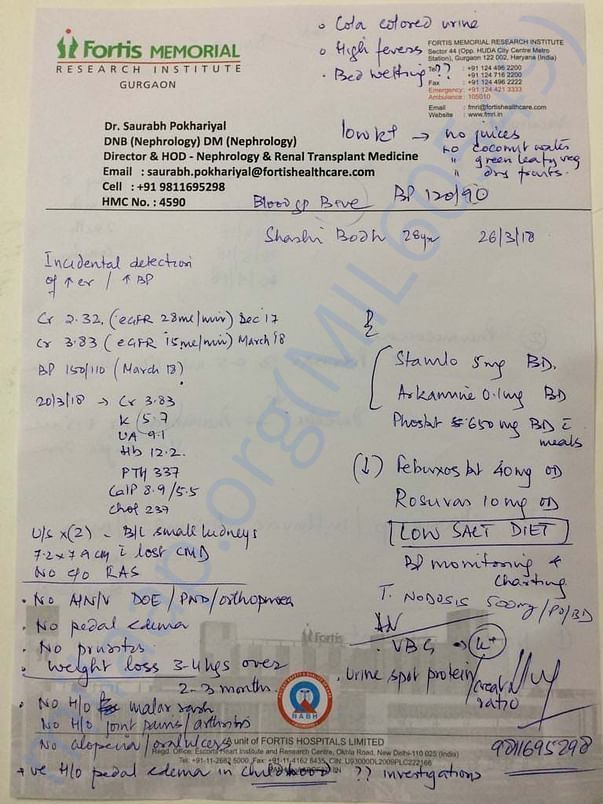 Fortis MEMORIAL
RESEARCH INSTITUTE
GURGAON
Cola colored urine
High fevers
Bed wetting ??
FORTIS MEMORIAL RESEARCH INSTITUTE
Sector 44 (Opp. HUDA City Centre Metro
Station), Gurgaon 122 002, Haryana (India)
Tel : +91 124 496 2200
+91 124 716 2200
Fax : +91 124 496 2222
Emergency: +91 124 421 3333
Ambulance: 105010
Email : fmri@fortishealthcare.com
Website : www.fmri.in
Dr. Saurabh Pokhariyal
DNB (Nephrology) DM (Nephrology)
Director & HOD - Nephrology & Renal Transplant Medicine
Email : saurabh.pokhariyal@fortishealthcare.com
Cell : +91 9811695298
HMC No. : 4590
low K+ → no juices
no coconut water
" green leafy veg
" dry fruits.
Blood gp B+ve BP 120/90
Shashi Bodh 28yr 26/3/18
Incidental detection
of ↑cr / ↑BP
Cr 2.32, (eGFR 28ml/min) Dec 17
Cr 3.83 (eGFR 15ml/min) March 18
BP 150/110 (March 18)
20/3/18 → Cr 3.83
K (5.7
UA 9.1
Hb 12.2.
PTH 337
Ca/P 8.9/5.5
Chol 237
U/S x(2) - B/L small kidneys
7.2 x 7.9 cm c lost CMD
No e/o RAS
Stamlo 5mg BD.
Arkamine 0.1mg BD
650 mg BD c
meals
(↓) Febuxostat 40mg OD
Rosuvas 10mg OD
LOW SALT DIET
BP monitoring &
charting
T. NODOSIS 500mg/PO/BD
. VBG → K+
. Urine spot protein/creat
ratio
. No A/N/V DOE / PND/orthopnea
. No pedal edema
. No pruritis
. Weight loss 3-4kgs over
2-3 months
. No H/o malar rash
No H/o joint pains/arthritis
No alopecia/oral ulcers
+ve H/o pedal edema in childhood ?? investigations
9811695298
Fortis
NABH
unit of FORTIS HOSPITALS LIMITED
Regd. Office: Escorts Heart Institute and Research Centre, Okhla Road, New Delhi-110 025 (India)
Tel: +91-11-2682 5000, Fax: +91-11-4162 8435, CIN: U93000DL2009PLC222166